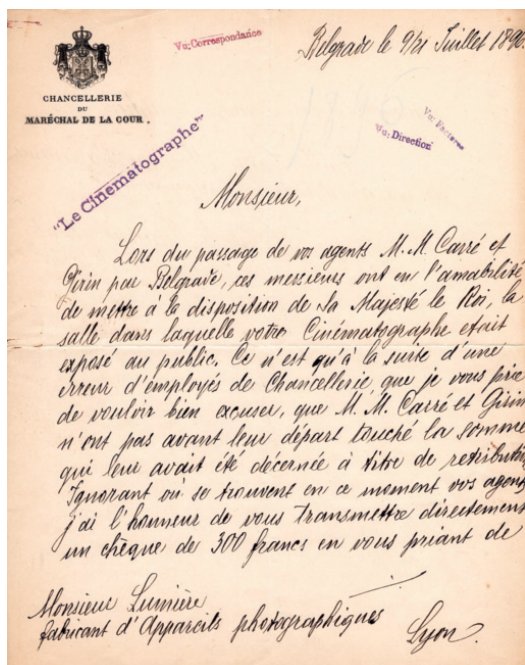 Vu: Correspondance
Belgrade le 9/21 Juillet 1896
CHANCELLERIE
DU
MARÉCHAL DE LA COUR.
Vu: Factures
Vu: Direction
"Le Cinématographe"
Monsieur,
Lors du passage de vos agents M.M. Carré et
Girin par Belgrade, ces messieurs ont eu l'amabilité
de mettre à la disposition de Sa Majesté le Roi, la
salle dans laquelle votre Cinématographe était
exposé au public. Ce n'est qu'à la suite d'une
erreur d'employés de Chancellerie que je vous prie
de vouloir bien excuser, que M.M. Carré et Girin
n'ont pas avant leur départ touché la somme
qui leur avait été décernée à titre de retributi
Ignorant où se trouvent en ce moment vos agents
j'ai l'honneur de vous transmettre directement
un chèque de 300 francs en vous priant de
Monsieur Lumière
fabricant d'Appareils photographiques
Lyon.